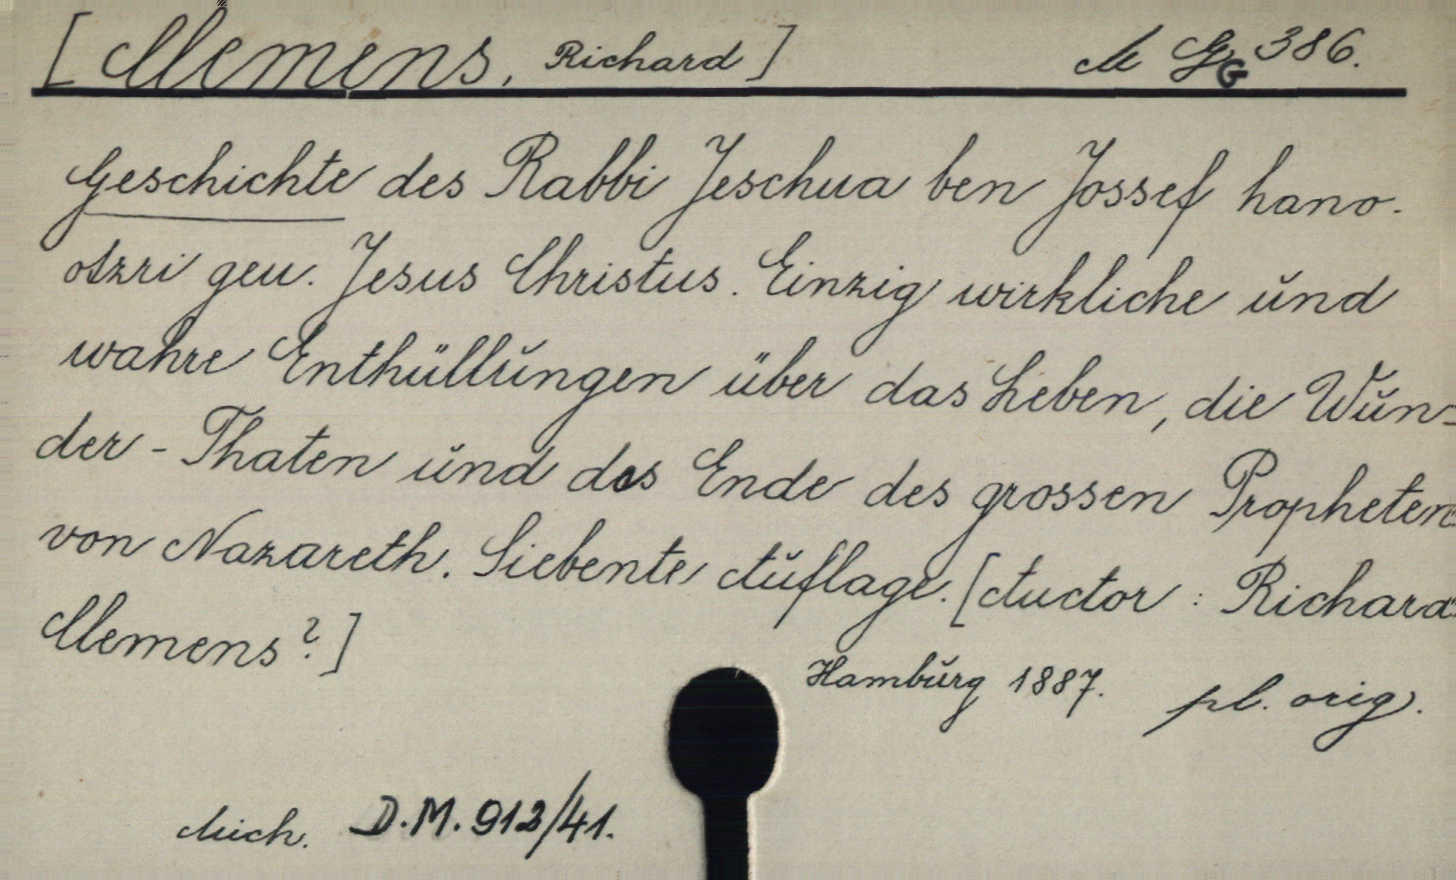 [Clemens, Richard] M Gg G 386.
Geschichte des Rabbi Jeschua ben Jossef hano-
otzri gen. Jesus Christus. Einzig wirkliche und
wahre Enthüllungen über das Leben, die Wun-
der-Thaten und das Ende des grossen Propheten
von Nazareth. Siebente Auflage. [Auctor: Richard
Clemens?]
Hamburg 1887. pl. orig.
Mich. D.M. 912/41.